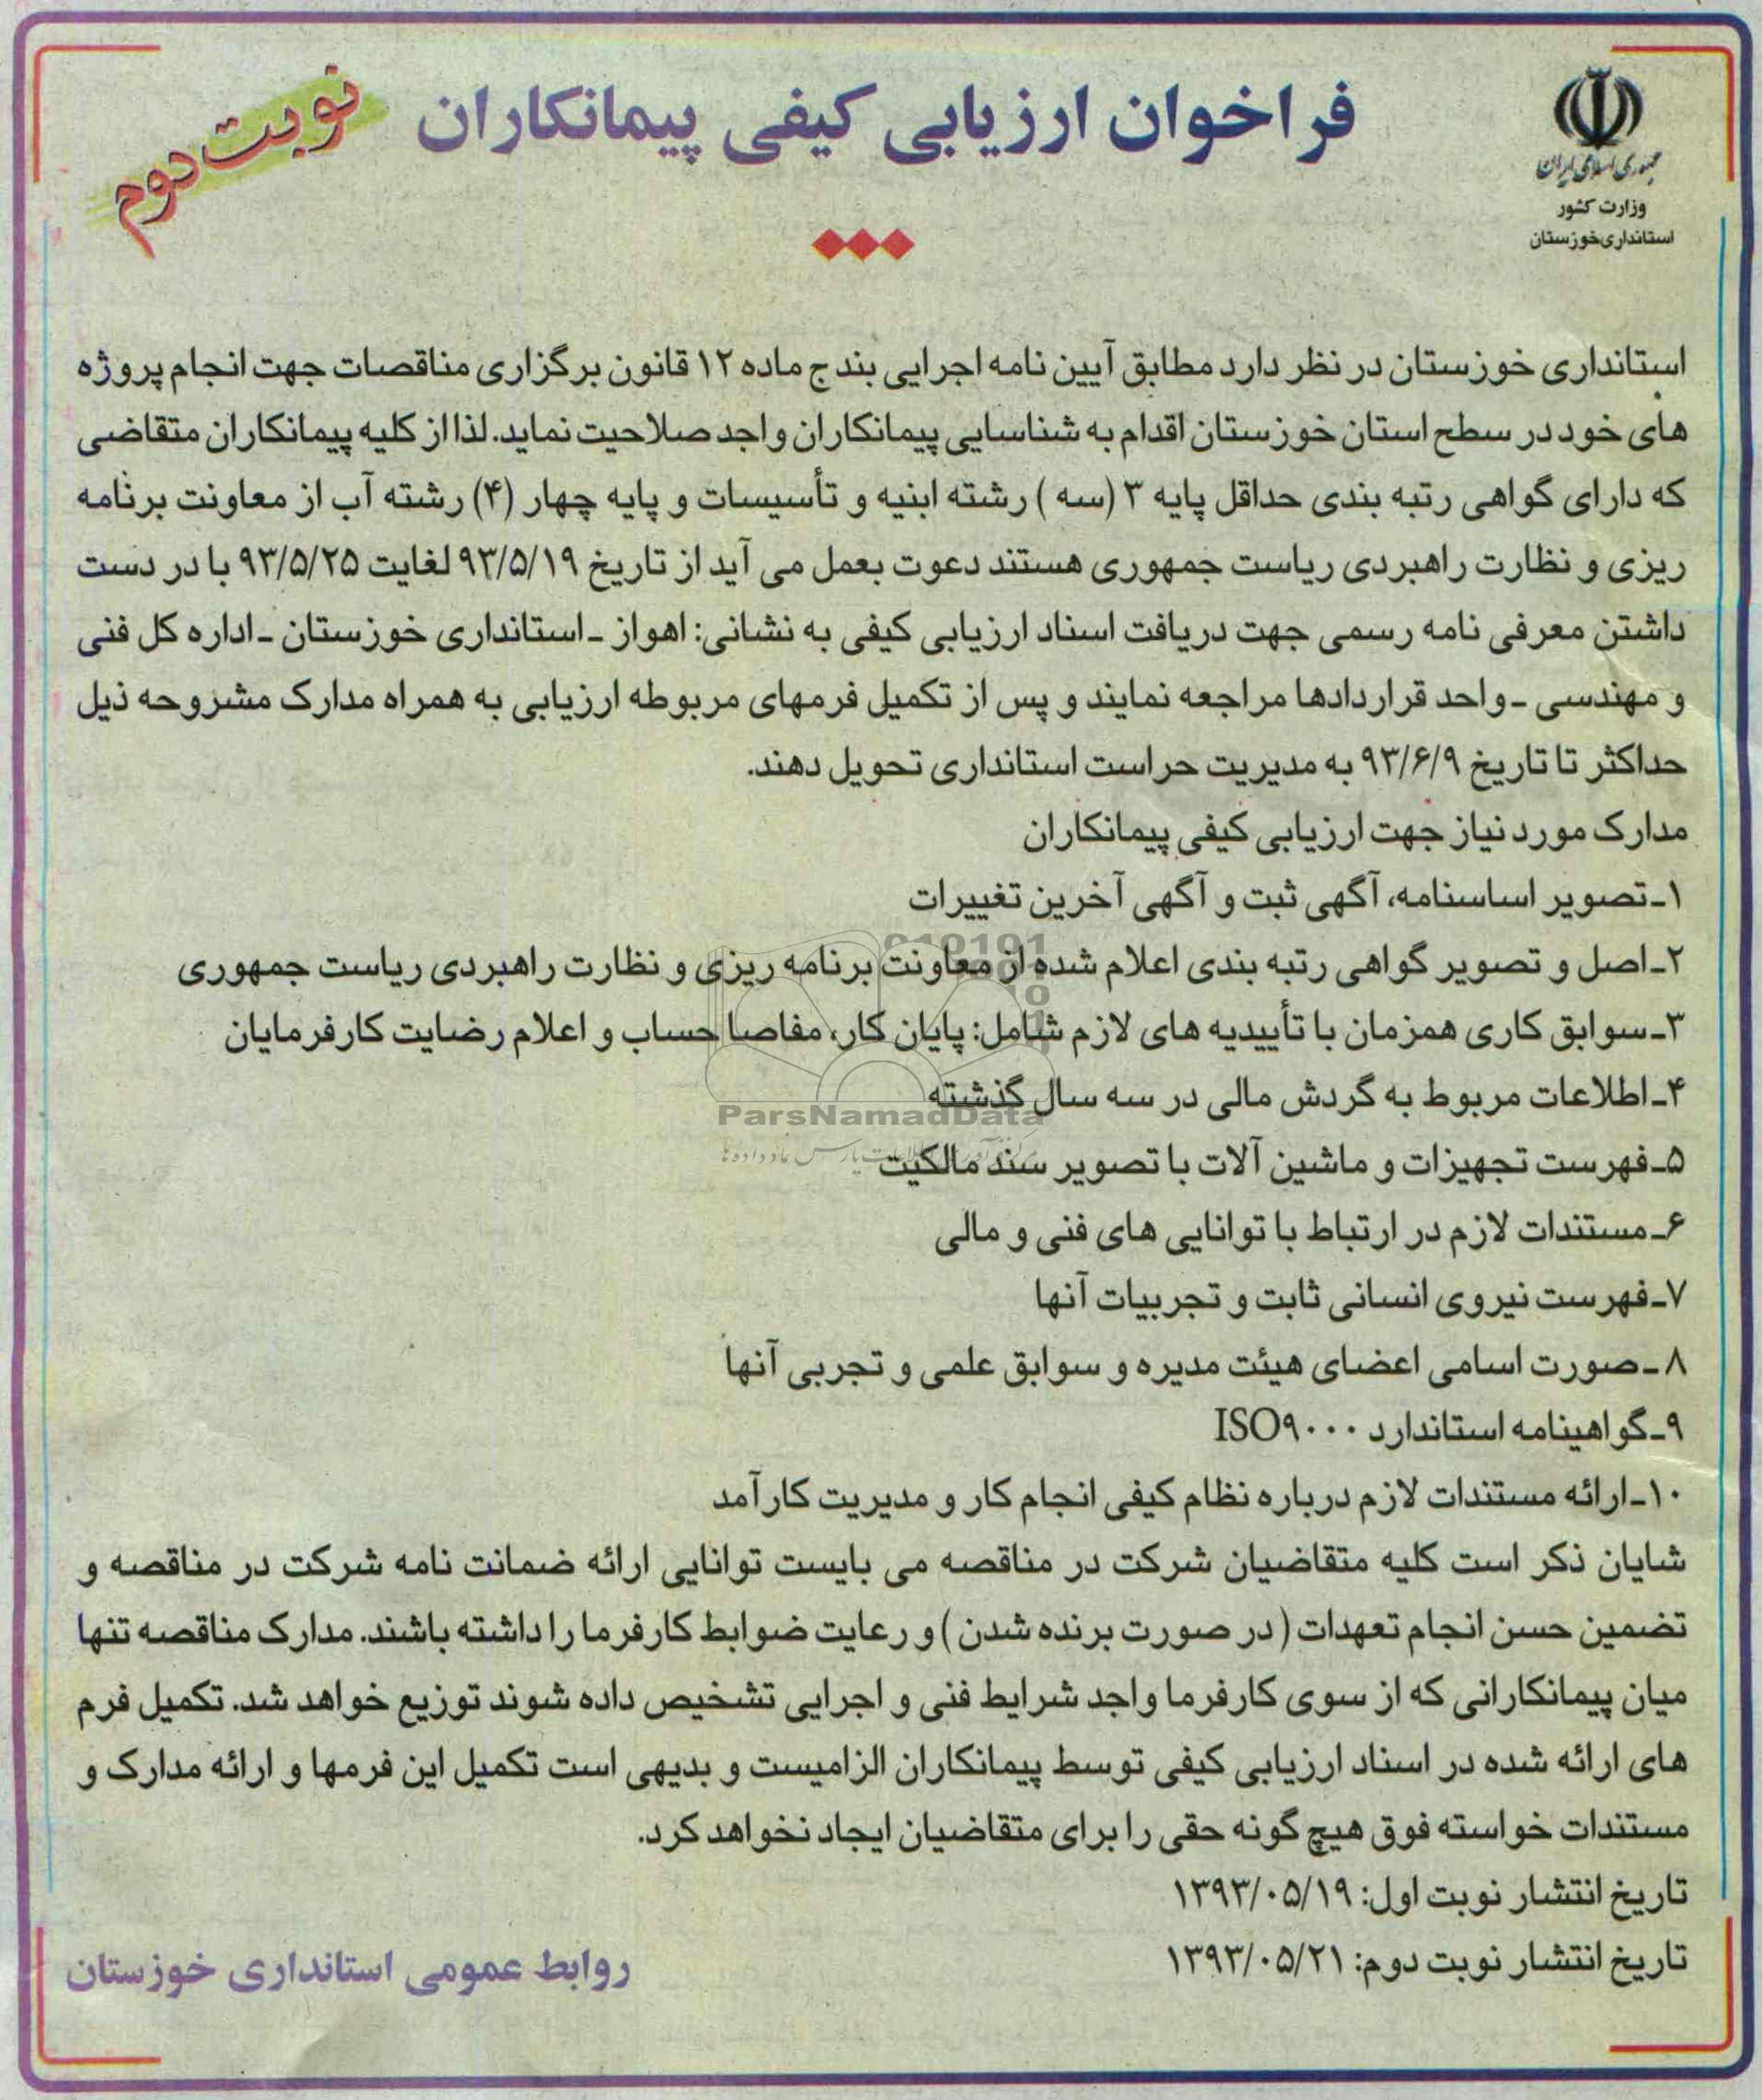 جمهوری اسلامی ایران
وزارت کشور
استانداری خوزستان
فراخوان ارزیابی کیفی پیمانکاران
نوبت دوم
استانداری خوزستان در نظر دارد مطابق آیین نامه اجرایی بند ج ماده ۱۲ قانون برگزاری مناقصات جهت انجام پروژه
های خود در سطح استان خوزستان اقدام به شناسایی پیمانکاران واجد صلاحیت نماید. لذا از کلیه پیمانکاران متقاضی
که دارای گواهی رتبه بندی حداقل پایه ۳ (سه ) رشته ابنیه و تأسیسات و پایه چهار (۴) رشته آب از معاونت برنامه
ریزی و نظارت راهبردی ریاست جمهوری هستند دعوت بعمل می آید از تاریخ ۹۳/۵/۱۹ لغایت ۹۳/۵/۲۵ با در دست
داشتن معرفی نامه رسمی جهت دریافت اسناد ارزیابی کیفی به نشانی: اهواز ـ استانداری خوزستان ـ اداره کل فنی
و مهندسی ـ واحد قراردادها مراجعه نمایند و پس از تکمیل فرمهای مربوطه ارزیابی به همراه مدارک مشروحه ذیل
حداکثر تا تاریخ ۹۳/۶/۹ به مدیریت حراست استانداری تحویل دهند.
مدارک مورد نیاز جهت ارزیابی کیفی پیمانکاران
۱ـ تصویر اساسنامه، آگهی ثبت و آگهی آخرین تغییرات
۲ـ اصل و تصویر گواهی رتبه بندی اعلام شده از معاونت برنامه ریزی و نظارت راهبردی ریاست جمهوری
۳ـ سوابق کاری همزمان با تأییدیه های لازم شامل: پایان کار، مفاصا حساب و اعلام رضایت کارفرمایان
۴ـ اطلاعات مربوط به گردش مالی در سه سال گذشته
ParsNamadData
۵ـ فهرست تجهیزات و ماشین آلات با تصویر سند مالکیت
۶ـ مستندات لازم در ارتباط با توانایی های فنی و مالی
۷ـ فهرست نیروی انسانی ثابت و تجربیات آنها
۸ ـ صورت اسامی اعضای هیئت مدیره و سوابق علمی و تجربی آنها
۹ـ گواهینامه استاندارد ISO۹۰۰۰
۱۰ـ ارائه مستندات لازم درباره نظام کیفی انجام کار و مدیریت کارآمد
شایان ذکر است کلیه متقاضیان شرکت در مناقصه می بایست توانایی ارائه ضمانت نامه شرکت در مناقصه و
تضمین حسن انجام تعهدات ( در صورت برنده شدن ) و رعایت ضوابط کارفرما را داشته باشند. مدارک مناقصه تنها
میان پیمانکارانی که از سوی کارفرما واجد شرایط فنی و اجرایی تشخیص داده شوند توزیع خواهد شد. تکمیل فرم
های ارائه شده در اسناد ارزیابی کیفی توسط پیمانکاران الزامیست و بدیهی است تکمیل این فرمها و ارائه مدارک و
مستندات خواسته فوق هیچ گونه حقی را برای متقاضیان ایجاد نخواهد کرد.
تاریخ انتشار نوبت اول: ۱۳۹۳/۰۵/۱۹
تاریخ انتشار نوبت دوم: ۱۳۹۳/۰۵/۲۱
روابط عمومی استانداری خوزستان